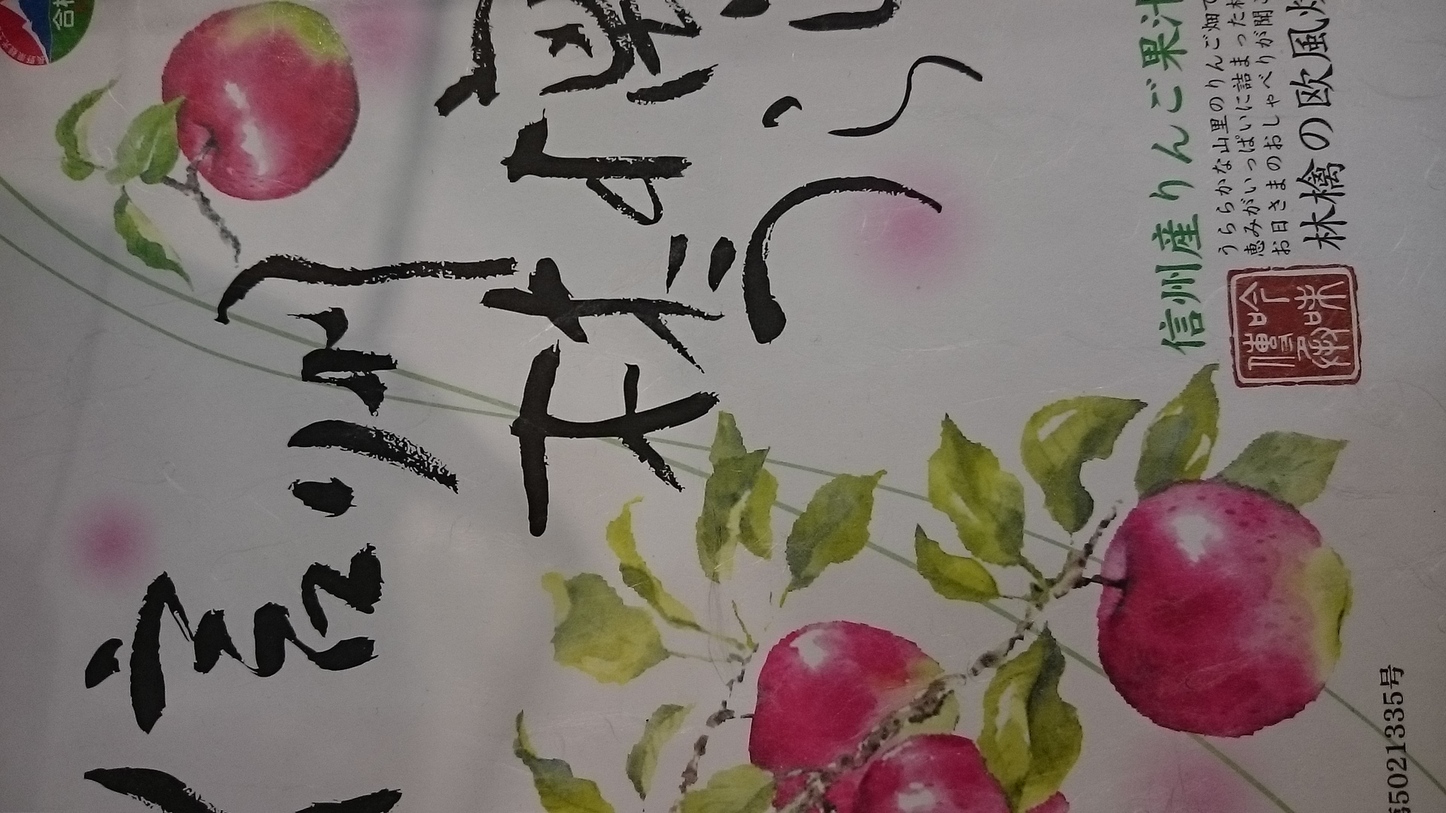 合格
信州
林檎
信州産りんご果汁
うららかな山里のりんご畑で
恵みがいっぱいに詰まった林
お日さまのおしゃべりが聞こ
林檎の欧風焼
5021335号